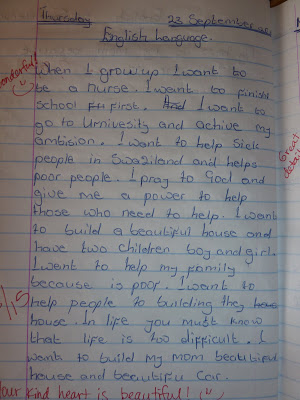 Thursday 23 September
English Language.
Wonderful!
When I grow up I want to
be a nurse. I want to finish
school first. I want to
go to University and achive my
ambision. I want to help sick
people in Swaziland and helps
poor people. I pray to God and
give me a power to help
those who need to help. I want
to build a beautiful house and
have two children boy and girl.
I want to help my family
because is poor. I want to
help people to building they
house. In life you must know
that life is too difficult. I
want to build my mom beautiful
house and beautiful car.
/15
Great
Your kind heart is beautiful!